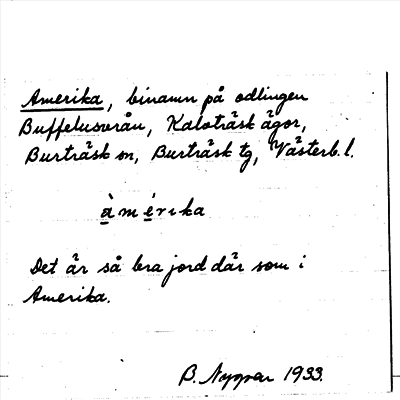 Amerika, binamn på odlingen
Buffelusvrån, Kaloträsk ägor,
Burträsk sn, Burträsk tg, Västerb. l.
àmérika
Det är så bra jord där som i
Amerika.
B. Nygren 1933.